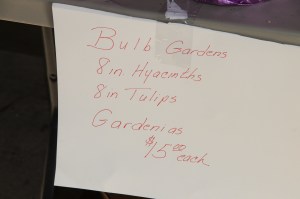 Bulb Gardens
8in Hyacinths
8in Tulips
Gardenias
$15.00 each